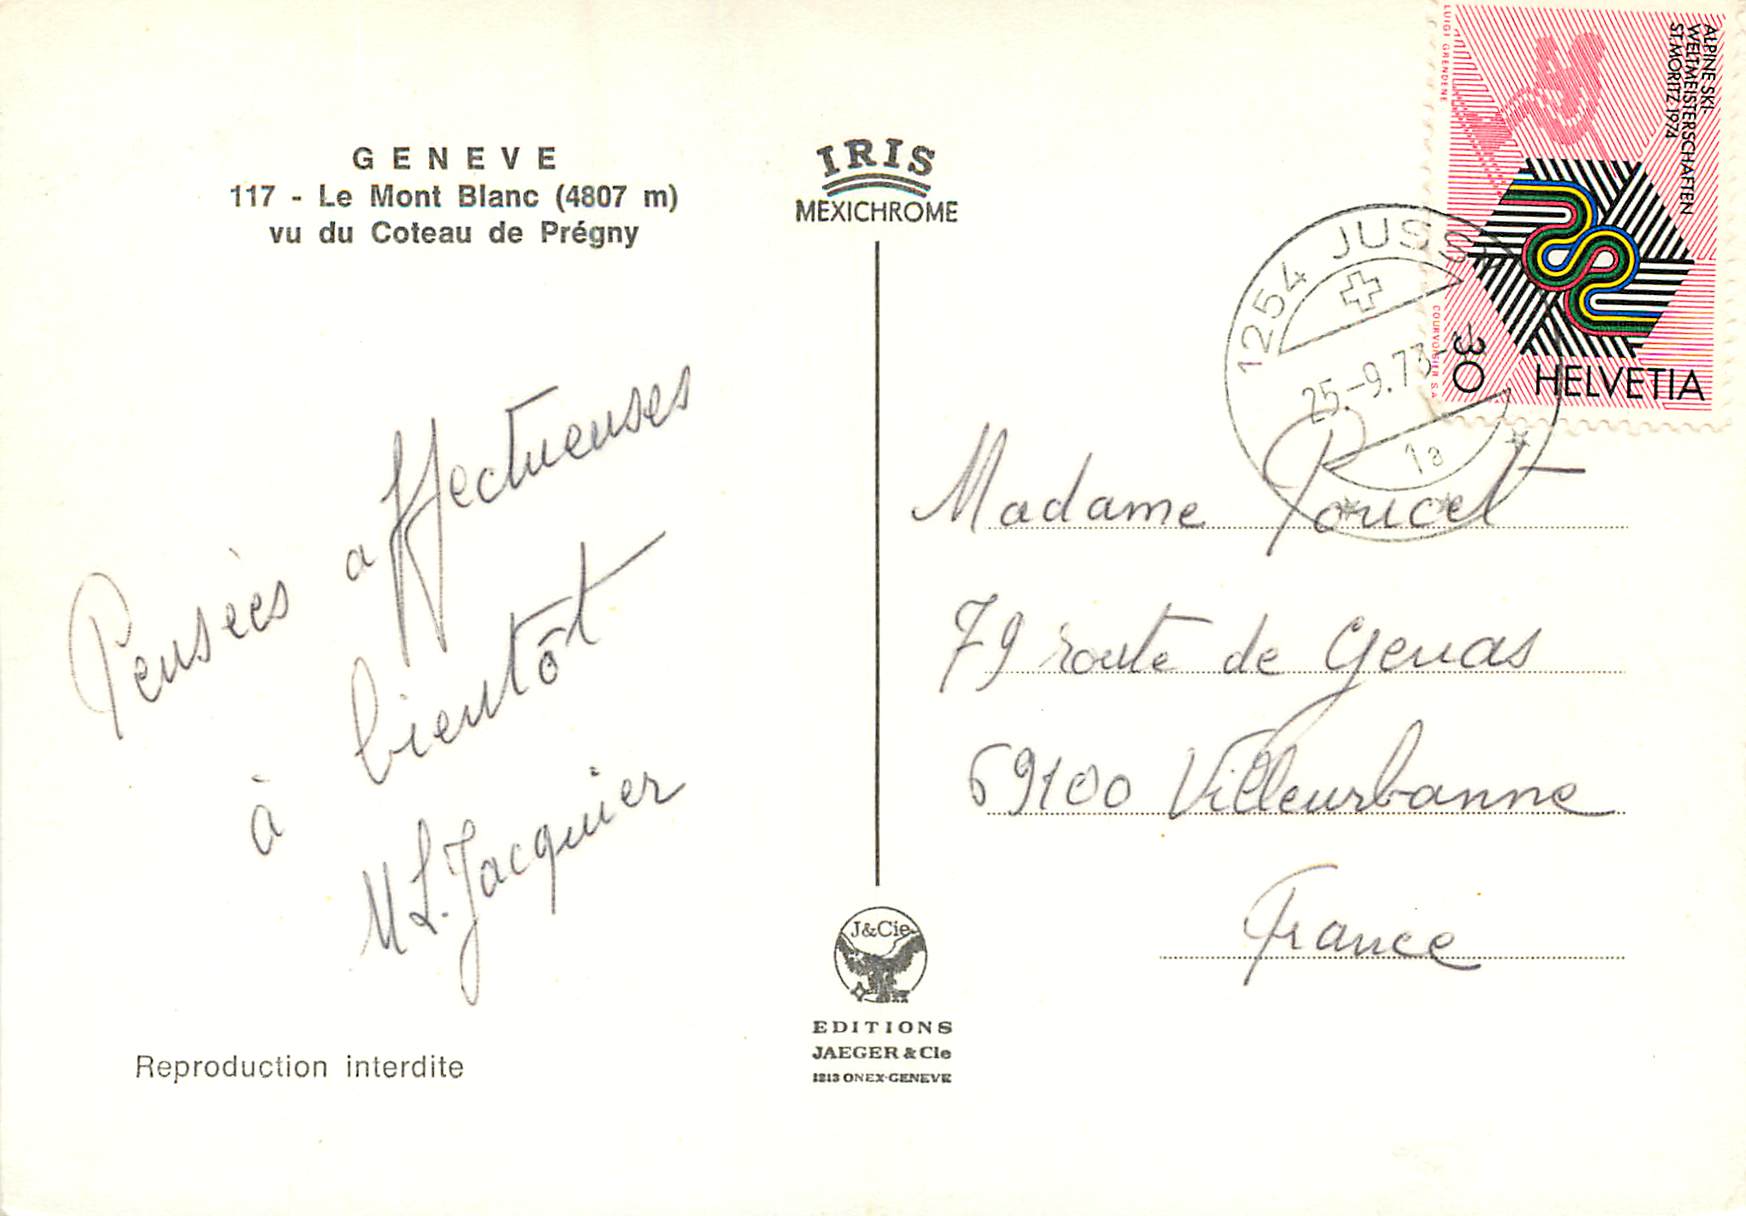 GENEVE
117 - Le Mont Blanc (4807 m)
vu du Coteau de Prégny
Pensées affectueuses
à bientôt
M L. Jacquier
Reproduction interdite
IRIS
MEXICHROME
J&Cie
EDITIONS
JAEGER & Cie
1213 ONEX-GENEVE
ALPINE SKI-
WELTMEISTERSCHAFTEN
ST. MORITZ 1974
LUIGI GRENDENE
COURVOISIER S.A.
30
HELVETIA
1254 JUSSY
25.-9.73-
1a
Madame Poucet
79 route de Genas
69100 Villeurbanne
France